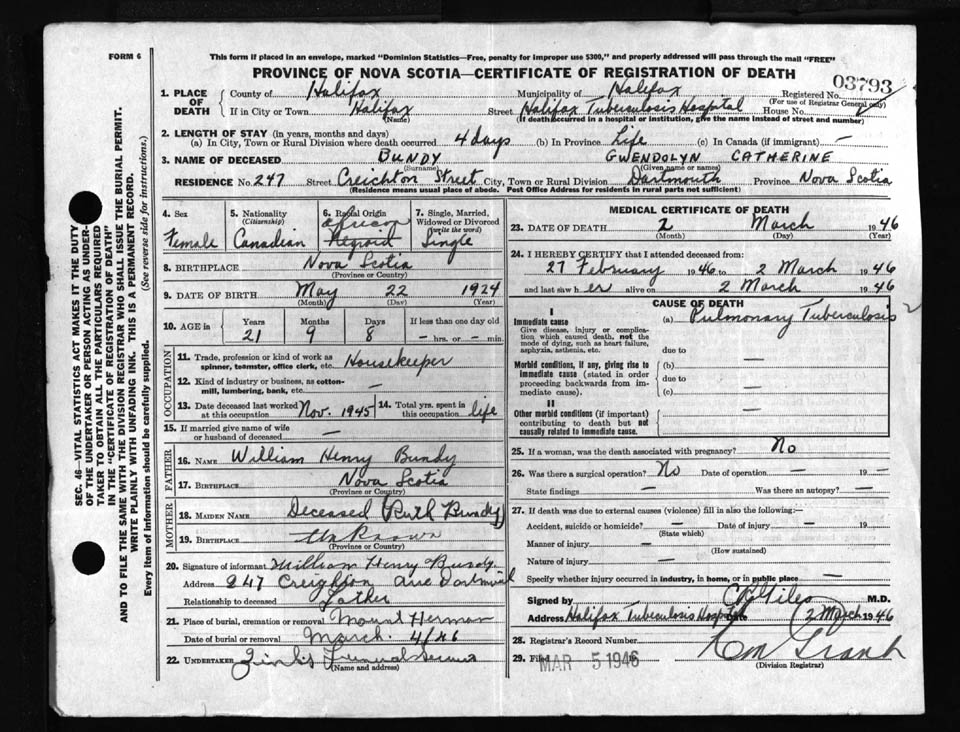 FORM 6
This form if placed in an envelope, marked "Dominion Statistics—Free, penalty for improper use $300," and properly addressed will pass through the mail "FREE"
PROVINCE OF NOVA SCOTIA—CERTIFICATE OF REGISTRATION OF DEATH
03793
1. PLACE OF DEATH
County of Halifax Municipality of Halifax Registered No.
(For use of Registrar General only)
If in City or Town Halifax Street Halifax Tuberculosis Hospital House No.
(Name) (If death occurred in a hospital or institution, give the name instead of street and number)
2. LENGTH OF STAY (in years, months and days)
(a) In City, Town or Rural Division where death occurred 4 days (b) In Province Life (c) In Canada (if immigrant) —
3. NAME OF DECEASED BUNDY GWENDOLYN CATHERINE
(Surname) (Given name or names)
RESIDENCE No. 247 Street Creichton Street City, Town or Rural Division Dartmouth Province Nova Scotia
(Residence means usual place of abode. Post Office Address for residents in rural parts not sufficient)
SEC. 46—VITAL STATISTICS ACT MAKES IT THE DUTY
OF THE UNDERTAKER OR PERSON ACTING AS UNDER-
TAKER TO OBTAIN ALL THE PARTICULARS REQUIRED
IN THE "CERTIFICATE OF REGISTRATION OF DEATH"
AND TO FILE THE SAME WITH THE DIVISION REGISTRAR WHO SHALL ISSUE THE BURIAL PERMIT.
WRITE PLAINLY WITH UNFADING INK. THIS IS A PERMANENT RECORD.
Every item of information should be carefully supplied. (See reverse side for instructions.)
4. Sex
Female
5. Nationality
(Citizenship)
Canadian
6. Racial Origin
African
Negroid
7. Single, Married, Widowed or Divorced
(write the word)
Single
8. BIRTHPLACE Nova Scotia
(Province or Country)
9. DATE OF BIRTH May 22 1924
(Month) (Day) (Year)
10. AGE in Years Months Days If less than one day old
21 9 8 — hrs. or — min.
OCCUPATION
11. Trade, profession or kind of work as
spinner, teamster, office clerk, etc. Housekeeper
12. Kind of industry or business, as cotton-
mill, lumbering, bank, etc. —
13. Date deceased last worked
at this occupation Nov. 1945
14. Total yrs. spent in
this occupation life
15. If married give name of wife
or husband of deceased —
FATHER
16. NAME William Henry Bundy
17. BIRTHPLACE Nova Scotia
(Province or Country)
MOTHER
18. MAIDEN NAME Deceased Ruth Bundy
19. BIRTHPLACE Unknown
(Province or Country)
20. Signature of informant William Henry Bundy
Address 247 Creighton Ave
Relationship to deceased Father
21. Place of burial, cremation or removal Mount Herman
Date of burial or removal March 4/46
22. UNDERTAKER Funeral Service
(Name and address)
MEDICAL CERTIFICATE OF DEATH
23. DATE OF DEATH 2 March 1946
(Month) (Day) (Year)
24. I HEREBY CERTIFY that I attended deceased from:
27 February 1946 to 2 March 1946
and last saw her alive on 2 March 1946
CAUSE OF DEATH
I
Immediate cause (a) Pulmonary Tuberculosis 2
Give disease, injury or complica-
tion which caused death, not the
mode of dying, such as heart failure,
asphyxia, asthenia, etc.
due to —
Morbid conditions, if any, giving rise to
immediate cause (stated in order
proceeding backwards from im-
mediate cause).
(b)
due to —
(c)
II
Other morbid conditions (if important)
contributing to death but not
causally related to immediate cause. —
25. If a woman, was the death associated with pregnancy? No
26. Was there a surgical operation? No Date of operation — 19 —
State findings — Was there an autopsy? —
27. If death was due to external causes (violence) fill in also the following:—
Accident, suicide or homicide? — Date of injury — 19
(State which)
Manner of injury —
(How sustained)
Nature of injury —
Specify whether injury occurred in industry, in home, or in public place —
Signed by M.D.
Address Halifax Tuberculosis Hospital Date 2 March 1946
28. Registrar's Record Number
29. Filed MAR 5 1946
(Division Registrar)